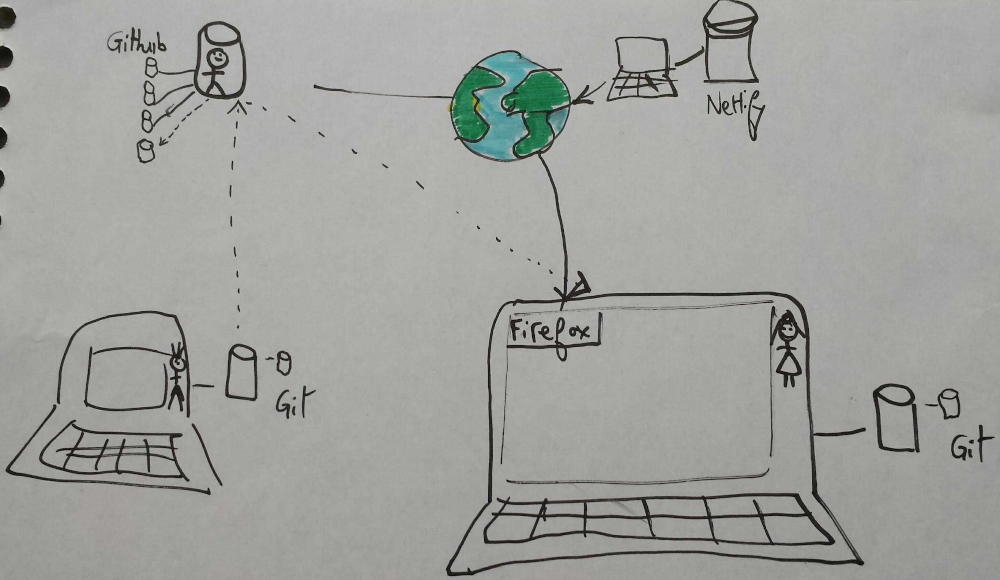 Github
Netlify
Firefox
Git
Git